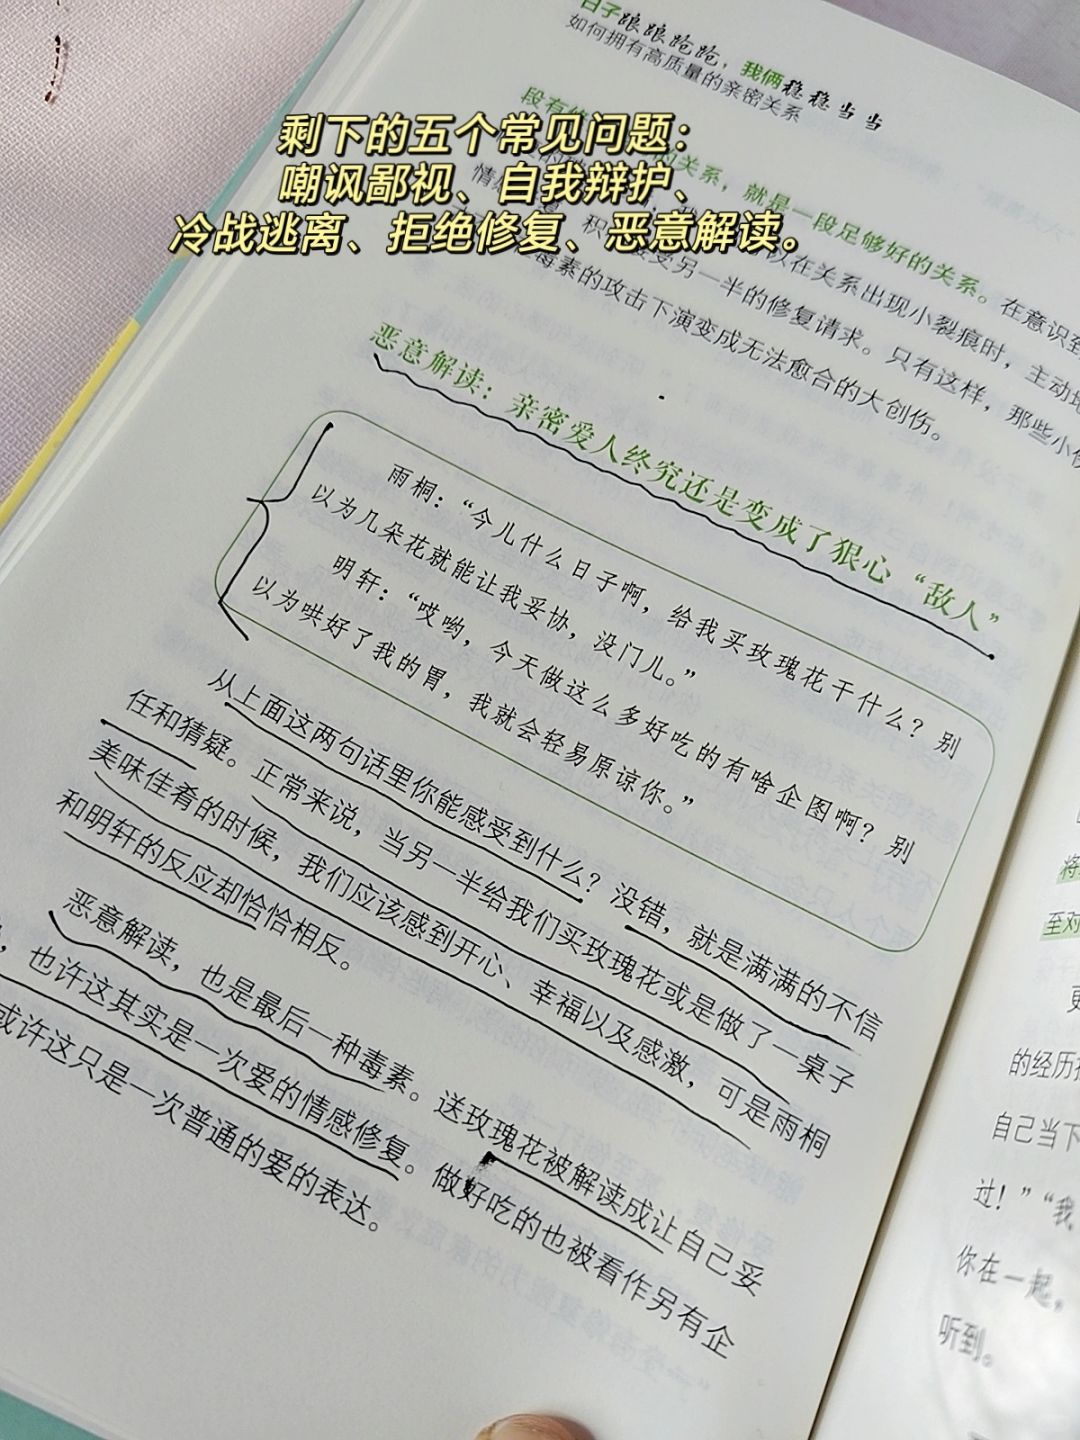 日子踉踉跄跄，我俩稳稳当当
如何拥有高质量的亲密关系
剩下的五个常见问题：
嘲讽鄙视、自我辩护、
冷战逃离、拒绝修复、恶意解读。
段有
的关系，就是一段足够好的关系。在意识到
情
以在关系出现小裂痕时，主动地
积
受另一半的修复请求。只有这样，那些小
毒素的攻击下演变成无法愈合的大创伤。
恶意解读：亲密爱人终究还是变成了狠心“敌人”
雨桐：“今儿什么日子啊，给我买玫瑰花干什么？别
以为几朵花就能让我妥协，没门儿。”
明轩：“哎哟，今天做这么多好吃的有啥企图啊？别
以为哄好了我的胃，我就会轻易原谅你。”
从上面这两句话里你能感受到什么？没错，就是满满的不信
任和猜疑。正常来说，当另一半给我们买玫瑰花或是做了一桌子
美味佳肴的时候，我们应该感到开心、幸福以及感激，可是雨桐
和明轩的反应却恰恰相反。
恶意解读，也是最后一种毒素。送玫瑰花被解读成让自己妥
，也许这其实是一次爱的情感修复。做好吃的也被看作另有企
或许这只是一次普通的爱的表达。
将
至对
更
的经历
自己当下
过！”“我
你在一起，
听到。